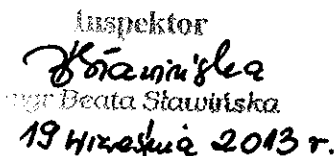 Inspektor
Sławińska
mgr Beata Sławińska
19 września 2013 r.